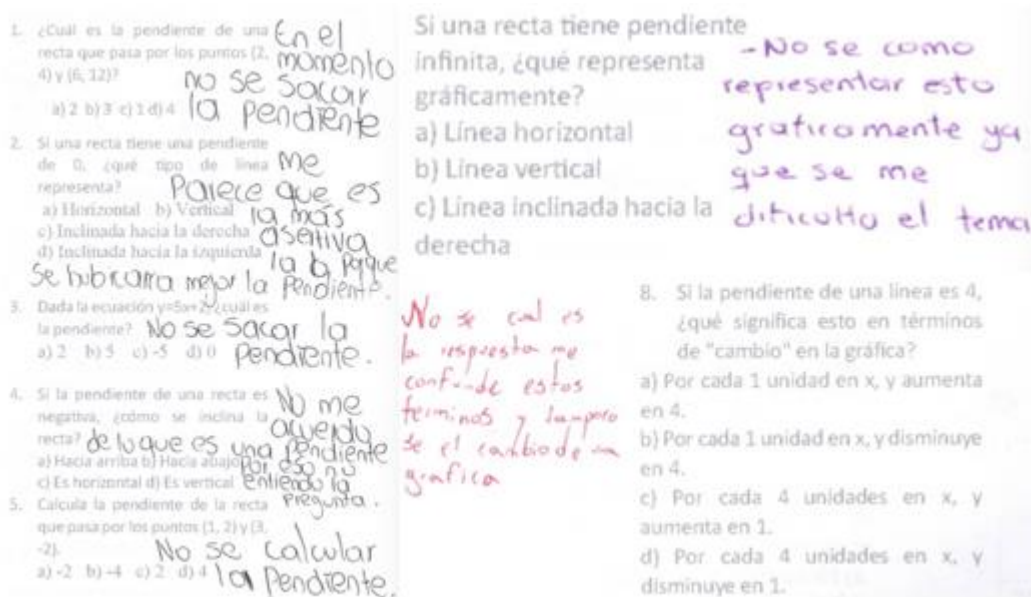 1. ¿Cuál es la pendiente de una
recta que pasa por los puntos (2,
4) y (6, 12)?
a) 2 b) 3 c) 1 d) 4
En el
momento
no se sacar
la pendiente
2. Si una recta tiene una pendiente
de 0, ¿qué tipo de línea
representa?
a) Horizontal b) Vertical
c) Inclinada hacia la derecha
d) Inclinada hacia la izquierda
Me
Parece que es
la más
asertiva
la b porque
Se hubicarra mejor la Pendiente.
3. Dada la ecuación y=5x+2, ¿cuál es
la pendiente?
a) 2 b) 5 c) -5 d) 0
No se Sacar la
Pendiente.
4. Si la pendiente de una recta es
negativa, ¿cómo se inclina la
recta?
a) Hacia arriba b) Hacia abajo
c) Es horizontal d) Es vertical
No me
acuerdo
de lo que es una pendiente
por eso no
entiendo la
pregunta.
5. Calcula la pendiente de la recta
que pasa por los puntos (1, 2) y (3,
-2).
a) -2 b) -4 c) 2 d) 4
No se calcular
la Pendiente.
Si una recta tiene pendiente
infinita, ¿qué representa
gráficamente?
a) Línea horizontal
b) Línea vertical
c) Línea inclinada hacia la
derecha
-No se como
representar esto
graficamente ya
que se me
dificulto el tema
No se cual es
la respuesta me
confunde estos
terminos y tampoco
se el cambio de una
grafica
8. Si la pendiente de una línea es 4,
¿qué significa esto en términos
de "cambio" en la gráfica?
a) Por cada 1 unidad en x, y aumenta
en 4.
b) Por cada 1 unidad en x, y disminuye
en 4.
c) Por cada 4 unidades en x, y
aumenta en 1.
d) Por cada 4 unidades en x, y
disminuye en 1.